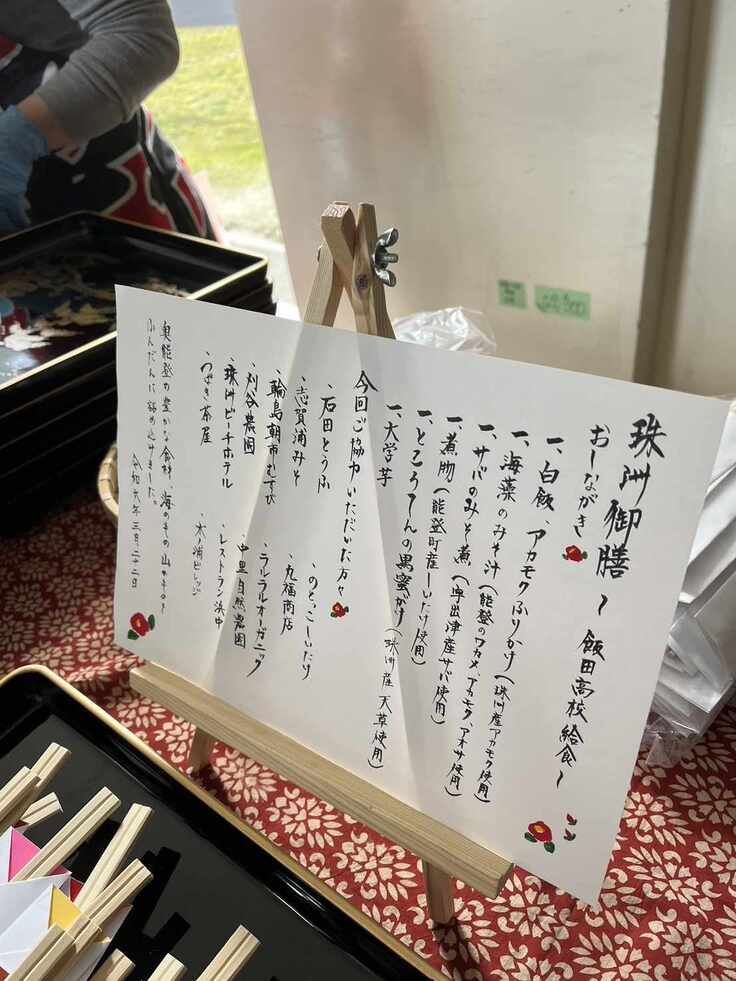 珠洲御膳 〜飯田高校給食〜
おしながき
一、白飯、アカモクふりかけ(珠洲産アカモク使用)
一、海藻のみそ汁(能登のワカメ、アカモク、アオサ使用)
一、サバのみそ煮(宇出津産サバ使用)
一、煮物(能登町産しいたけ使用)
一、ところてんの黒蜜がけ(珠洲産天草使用)
一、大学芋
今回ご協力いただいた方々
・石田とうふ ・のとっこしいたけ
・志賀浦みそ ・丸福商店
・輪島朝市むすび ・ラルラルオーガニック
・刈谷農園 ・中里自然農園
・珠洲ビーチホテル ・レストラン浜中
・つばき茶屋 ・木ノ浦ビレッジ
奥能登の豊かな食材、海のもの山のものを
ふんだんに詰め込みました。
令和六年 三月二十二日